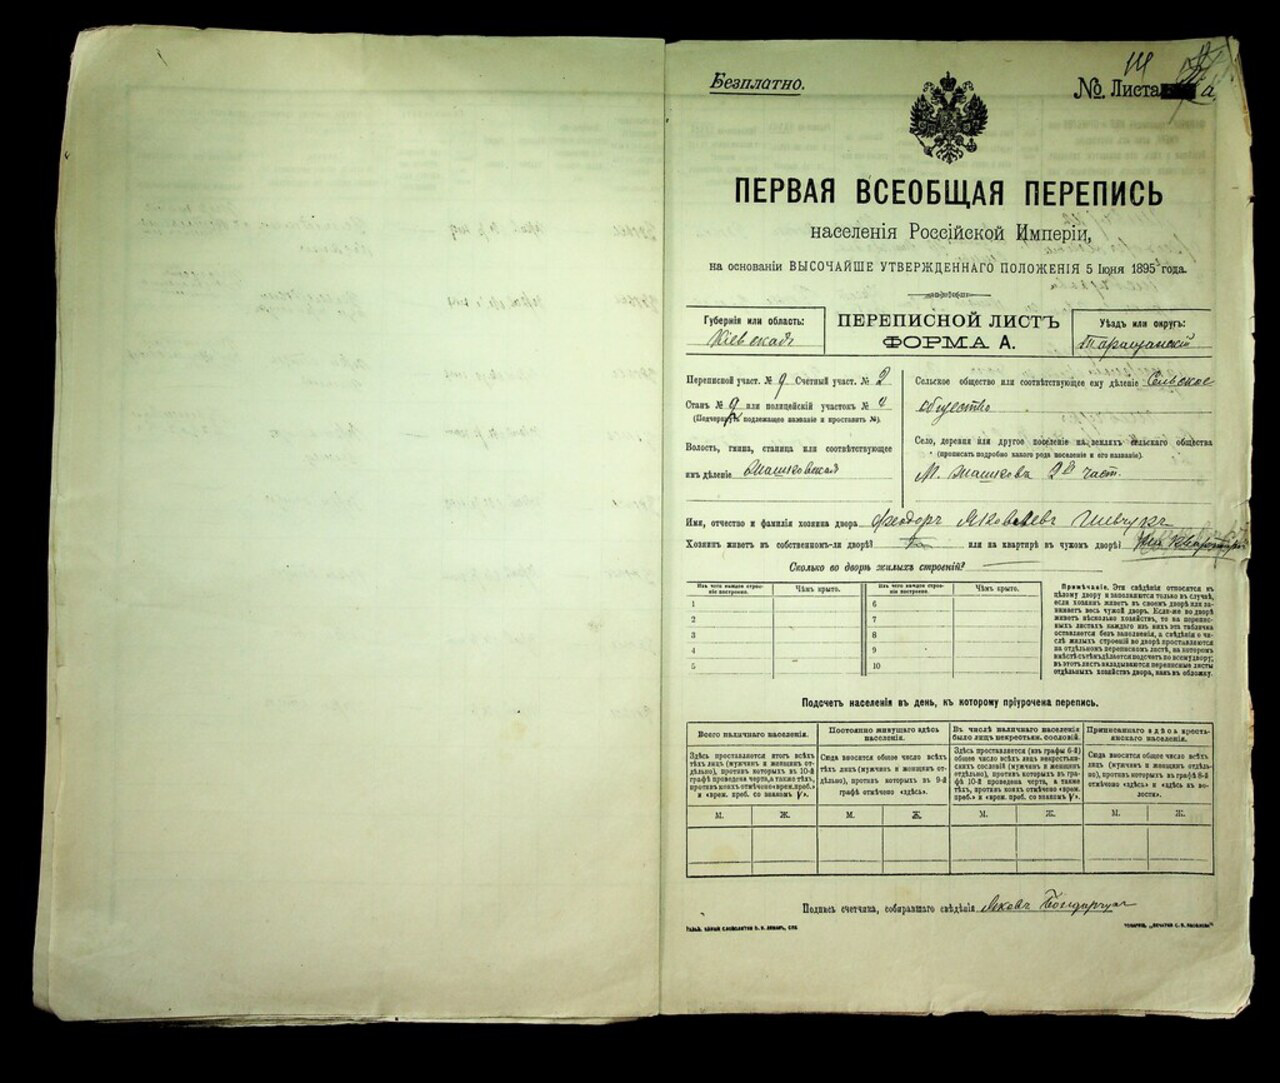 Безплатно.
№ Листа
ПЕРВАЯ ВСЕОБЩАЯ ПЕРЕПИСЬ
населенія Россійской Имперіи,
на основаніи ВЫСОЧАЙШЕ УТВЕРЖДЕННАГО ПОЛОЖЕНІЯ 5 Іюня 1895 года.
Губернія или область:
Кіевская
ПЕРЕПИСНОЙ ЛИСТЪ
ФОРМА А.
Уѣздъ или округъ:
Таращанскій
Переписной участ. № 9 Счетный участ. № 2
Станъ № 9 или полицейскій участокъ № 4
(Подчеркнуть подлежащее названіе и проставить №).
Волость, гмина, станица или соотвѣтствующее
имъ дѣленіе
Сельское общество или соотвѣтствующее ему дѣленіе Сельское
общество
Село, деревня или другое поселеніе на земляхъ сельскаго общества
(прописать подробно какого рода поселеніе и его названіе).
Имя, отчество и фамилія хозяина двора Феодоръ Яковлевъ Шевчукъ
Хозяинъ живетъ въ собственном-ли дворѣ? или на квартирѣ въ чужом дворѣ?
Сколько во дворѣ жилыхъ строеній?
Изъ чего каждое строеніе построено.
Чѣмъ крыто.
Изъ чего каждое строеніе построено.
Чѣмъ крыто.
1
2
3
4
5
6
7
8
9
10
Примѣчаніе. Эти свѣдѣнія относятся къ
цѣлому двору и заполняются только въ случаѣ,
если хозяинъ живетъ въ своемъ дворѣ или за-
нимаетъ весь чужой дворъ. Если-же во дворѣ
живетъ нѣсколько хозяйствъ, то на перепис-
ныхъ листахъ каждаго изъ нихъ эта табличка
оставляется безъ заполненія, а свѣдѣнія о чи-
слѣ жилыхъ строеній во дворѣ проставляются
на отдѣльномъ переписномъ листѣ, на которомъ
вмѣстѣ съ тѣмъ дѣлается подсчетъ по всему двору;
въ этотъ листъ вкладываются переписные листы
отдѣльныхъ хозяйствъ двора, какъ въ обложку.
Подсчетъ населенія въ день, къ которому пріурочена перепись.
Всего наличнаго населенія.
Здѣсь проставляется итогъ всѣхъ
тѣхъ лицъ (мужчинъ и женщинъ от-
дѣльно), противъ которыхъ въ 10-й
графѣ проведена черта, а также тѣхъ,
противъ коихъ отмѣчено «врем. преб.»
и «врем. преб. со знакомъ V».
Постоянно живущаго здѣсь
населенія.
Сюда вносится общее число всѣхъ
тѣхъ лицъ (мужчинъ и женщинъ от-
дѣльно), противъ которыхъ въ 9-й
графѣ отмѣчено «здѣсь».
Въ числѣ наличнаго населенія
было лицъ некрестьян. сословій.
Здѣсь проставляется (изъ графы 6-й)
общее число всѣхъ лицъ некрестьян-
скихъ сословій (мужчинъ и женщинъ
отдѣльно), противъ которыхъ въ гра-
фѣ 10-й проведена черта, а также
тѣхъ, противъ коихъ отмѣчено «врем.
преб.» и «врем. преб. со знакомъ V».
Приписаннаго здѣсь кресть-
янскаго населенія.
Сюда вносится общее число всѣхъ
лицъ (мужчинъ и женщинъ отдѣль-
но), противъ которыхъ въ графѣ 8-й
отмѣчено «здѣсь» и «здѣсь въ во-
лости».
М. Ж. М. Ж. М. Ж. М. Ж.
Подпись счетчика, собиравшаго свѣдѣнія Яковъ Бондарчукъ